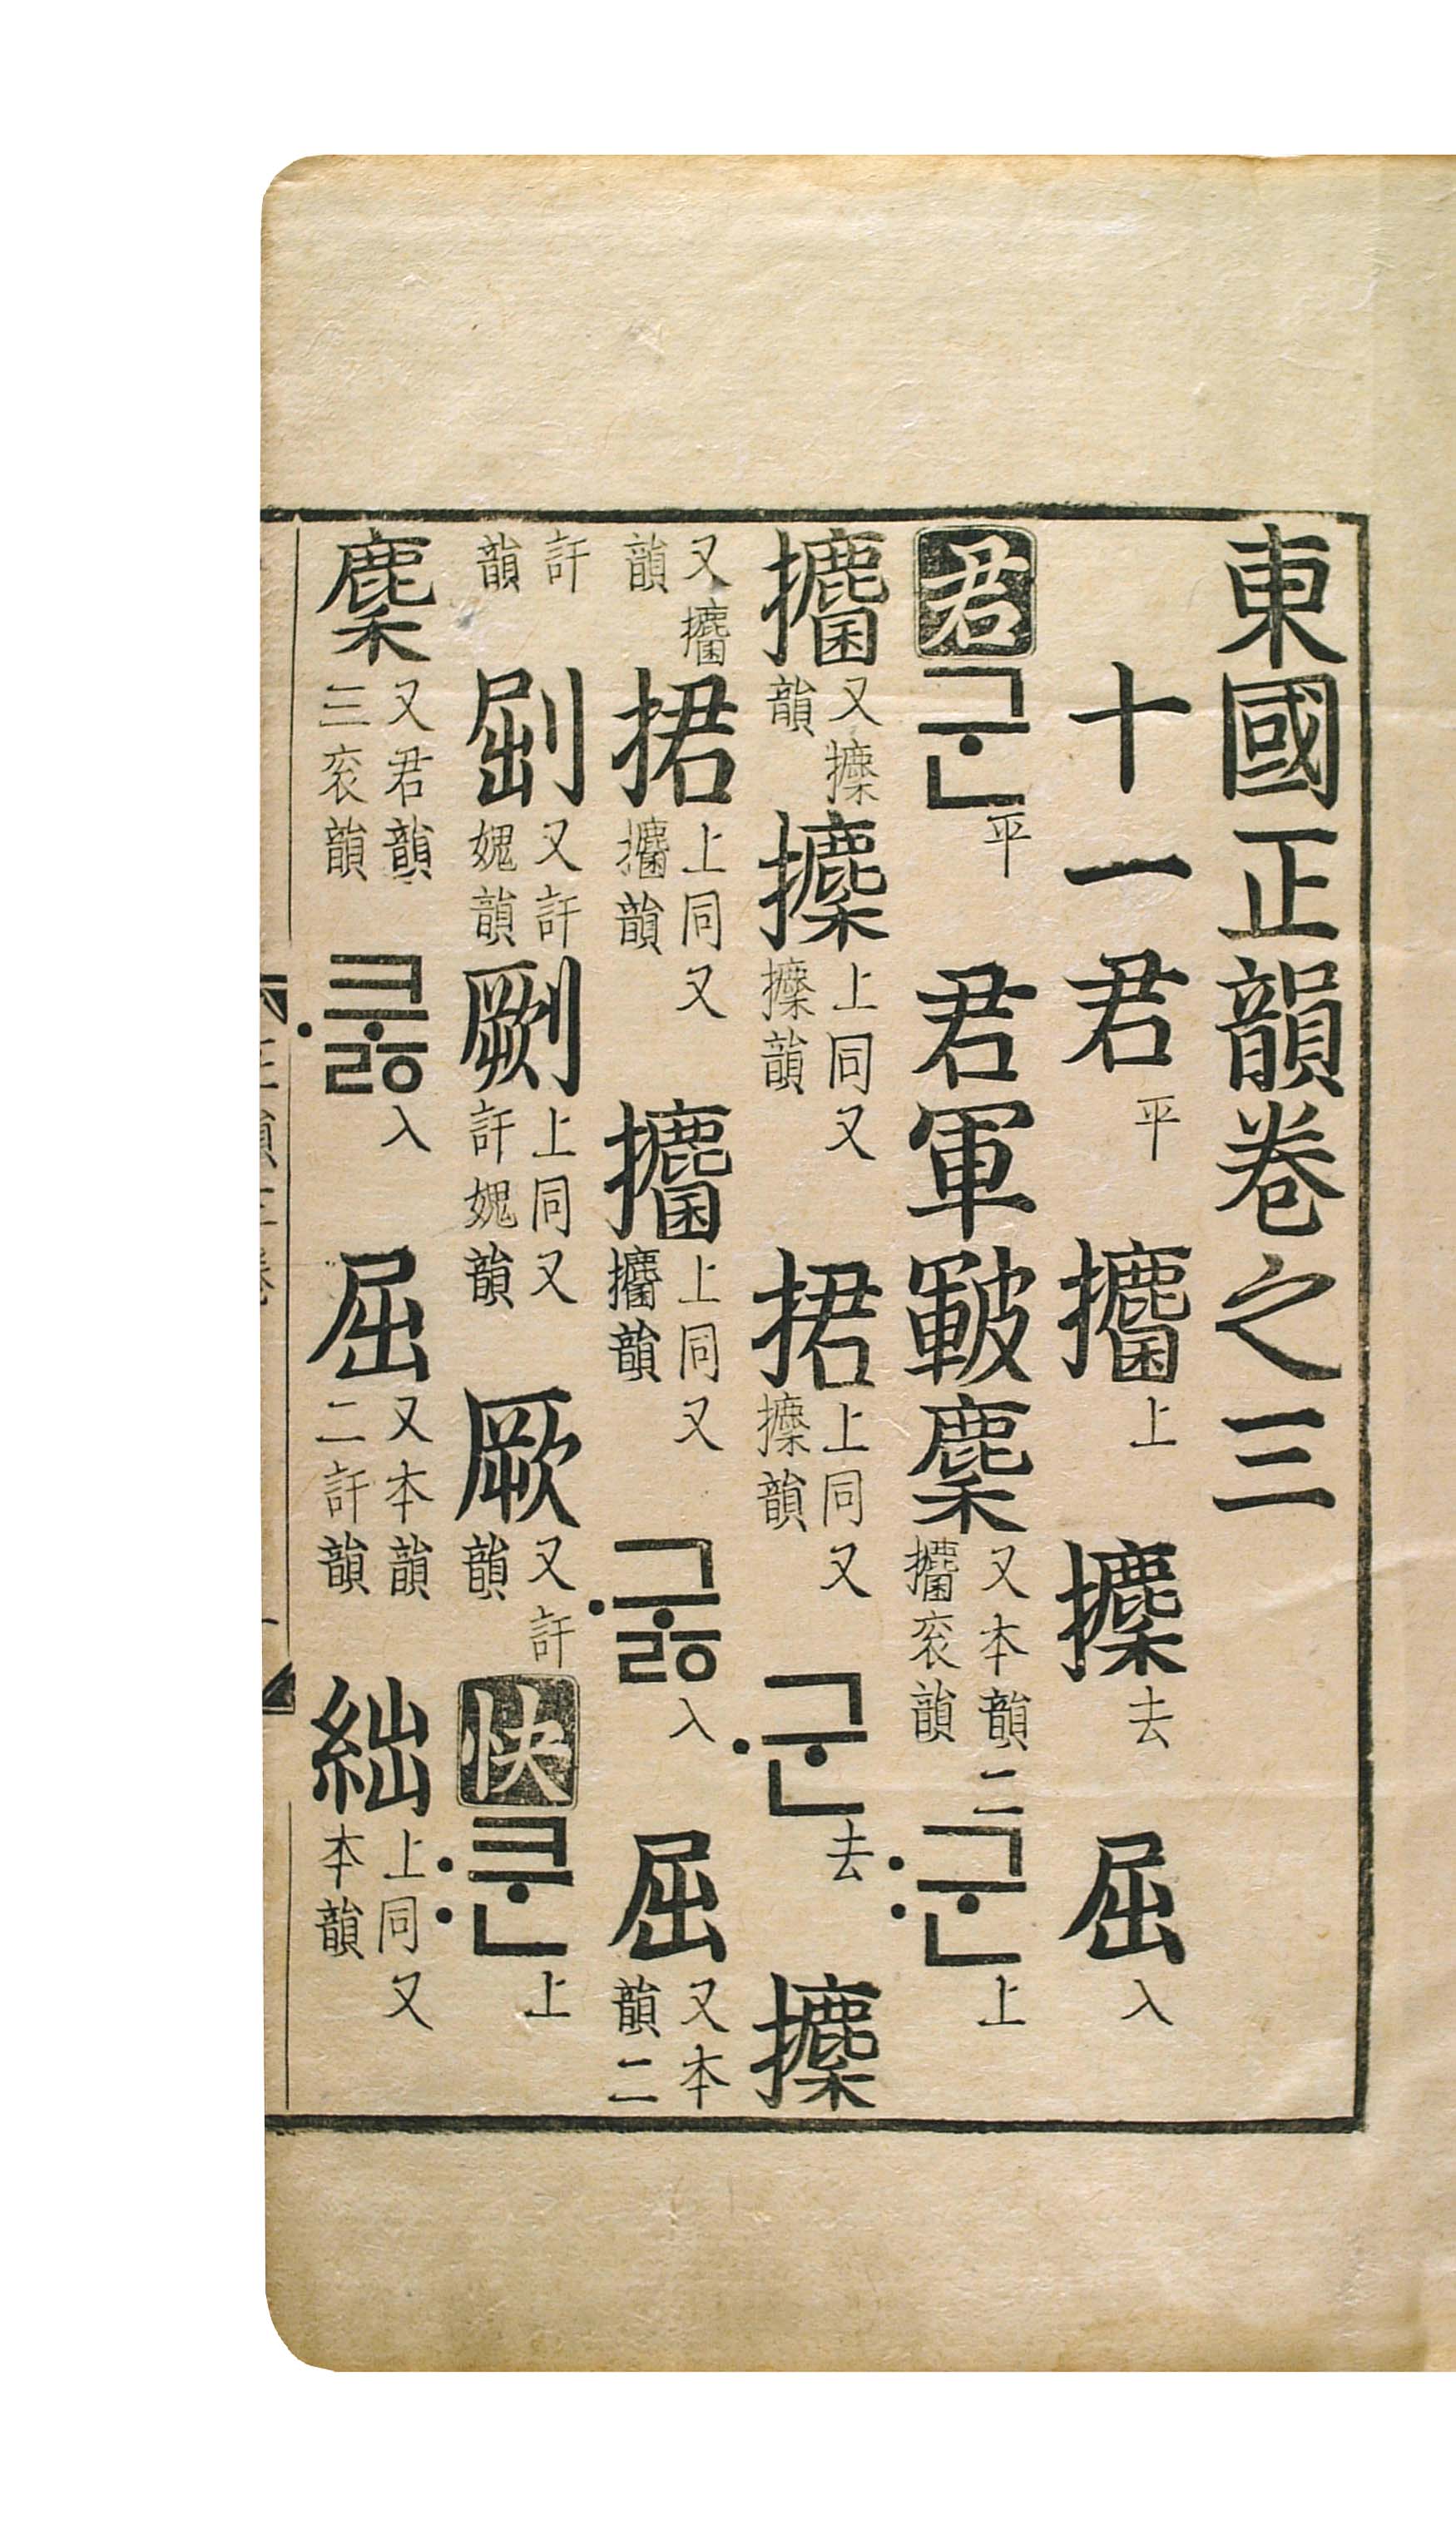 東國正韻卷之三
十一君平攟上攈去屈入
君군平君軍皸麇又本韻二攟衮韻〯군上
攟又攈韻攈上同又攈韻捃上同又攈韻〮군去攈
又攟韻捃上同又攟韻攟上同又攟韻〮구ᇙ入屈又本韻二
訐韻又訐媿韻劂上同又訐媿韻厥又訐韻快〯쿤上
麇又君韻三衮韻〮쿠ᇙ入屈又本韻二訐韻絀上同又本韻